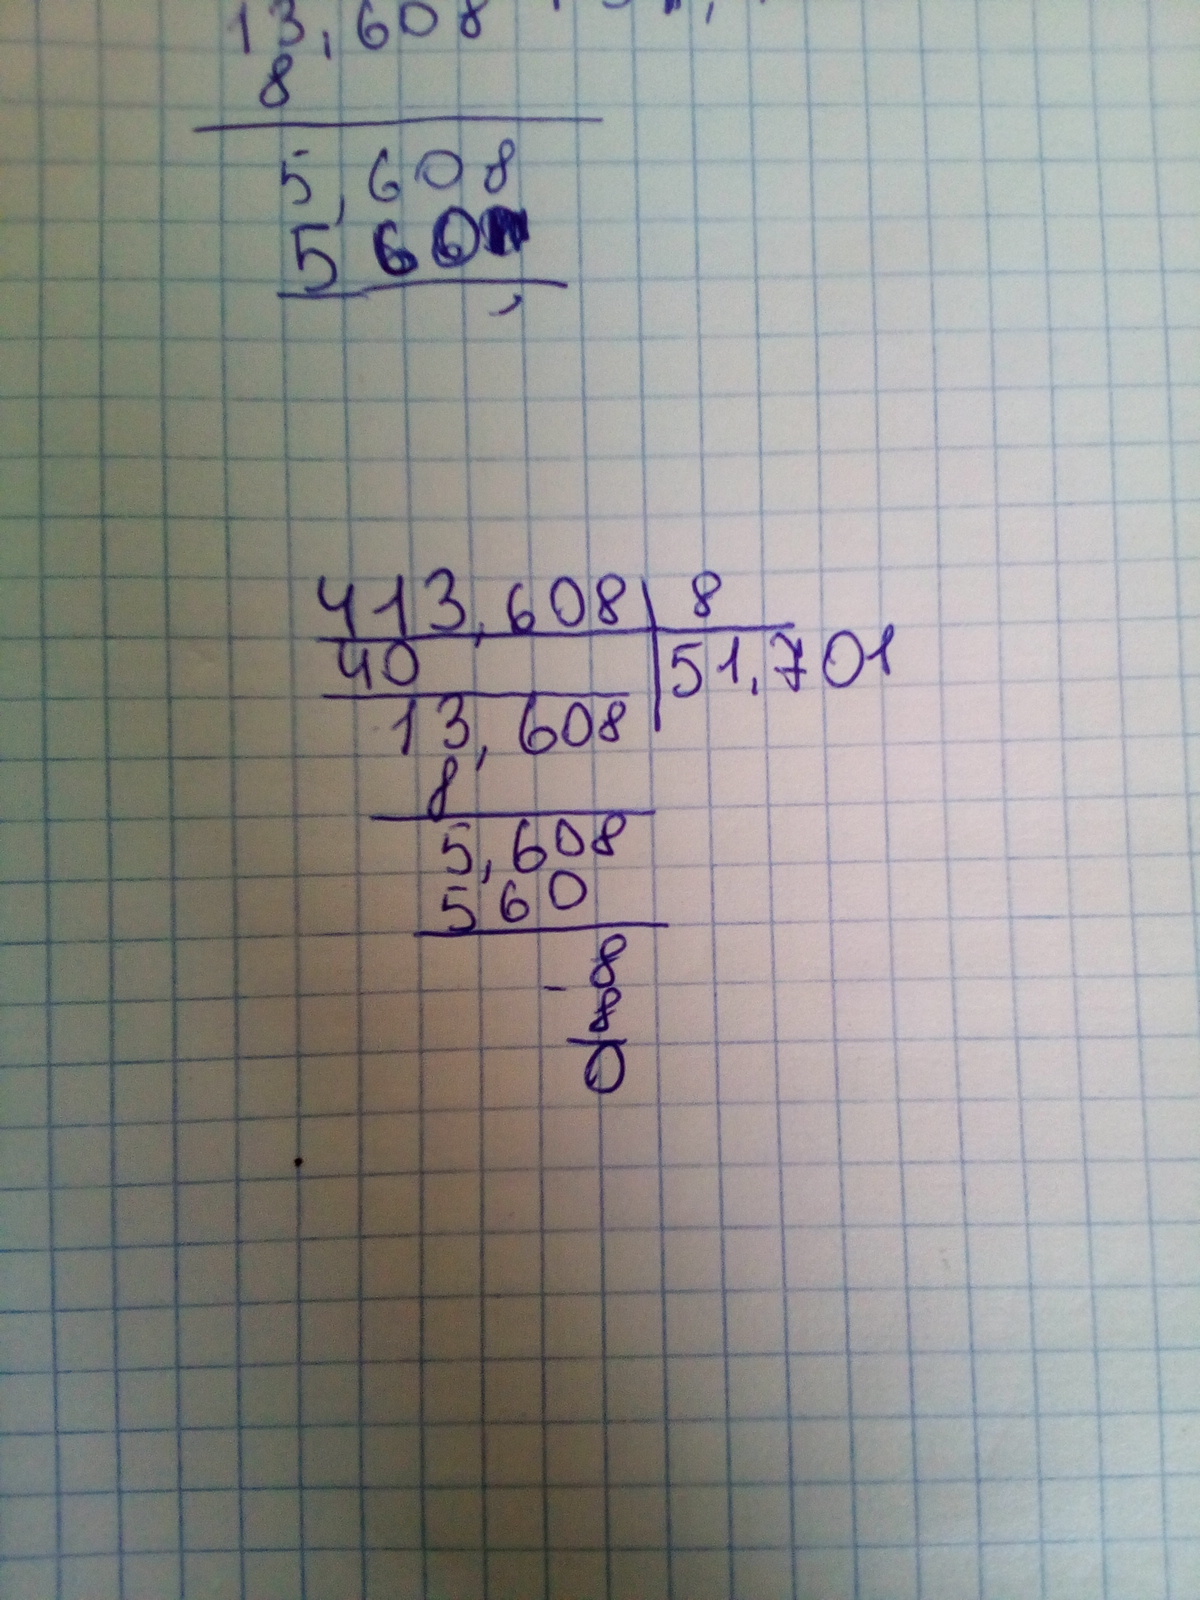 13,608
8
5,608
5 60
,
413,608 8
40 51,701
13,608
8
5,608
560
- 8
8
0